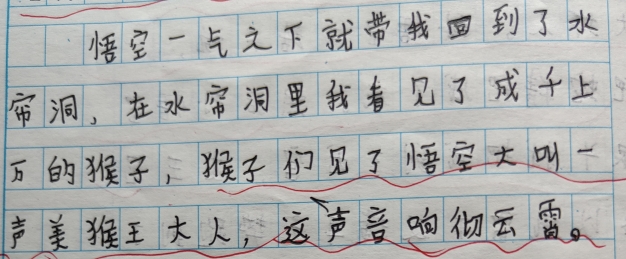 悟空一气之下就带我回到了水
帘洞，在水帘洞里我看见了成千上
万的猴子，猴子们见了悟空大叫一
声美猴王大人，这声音响彻云霄。